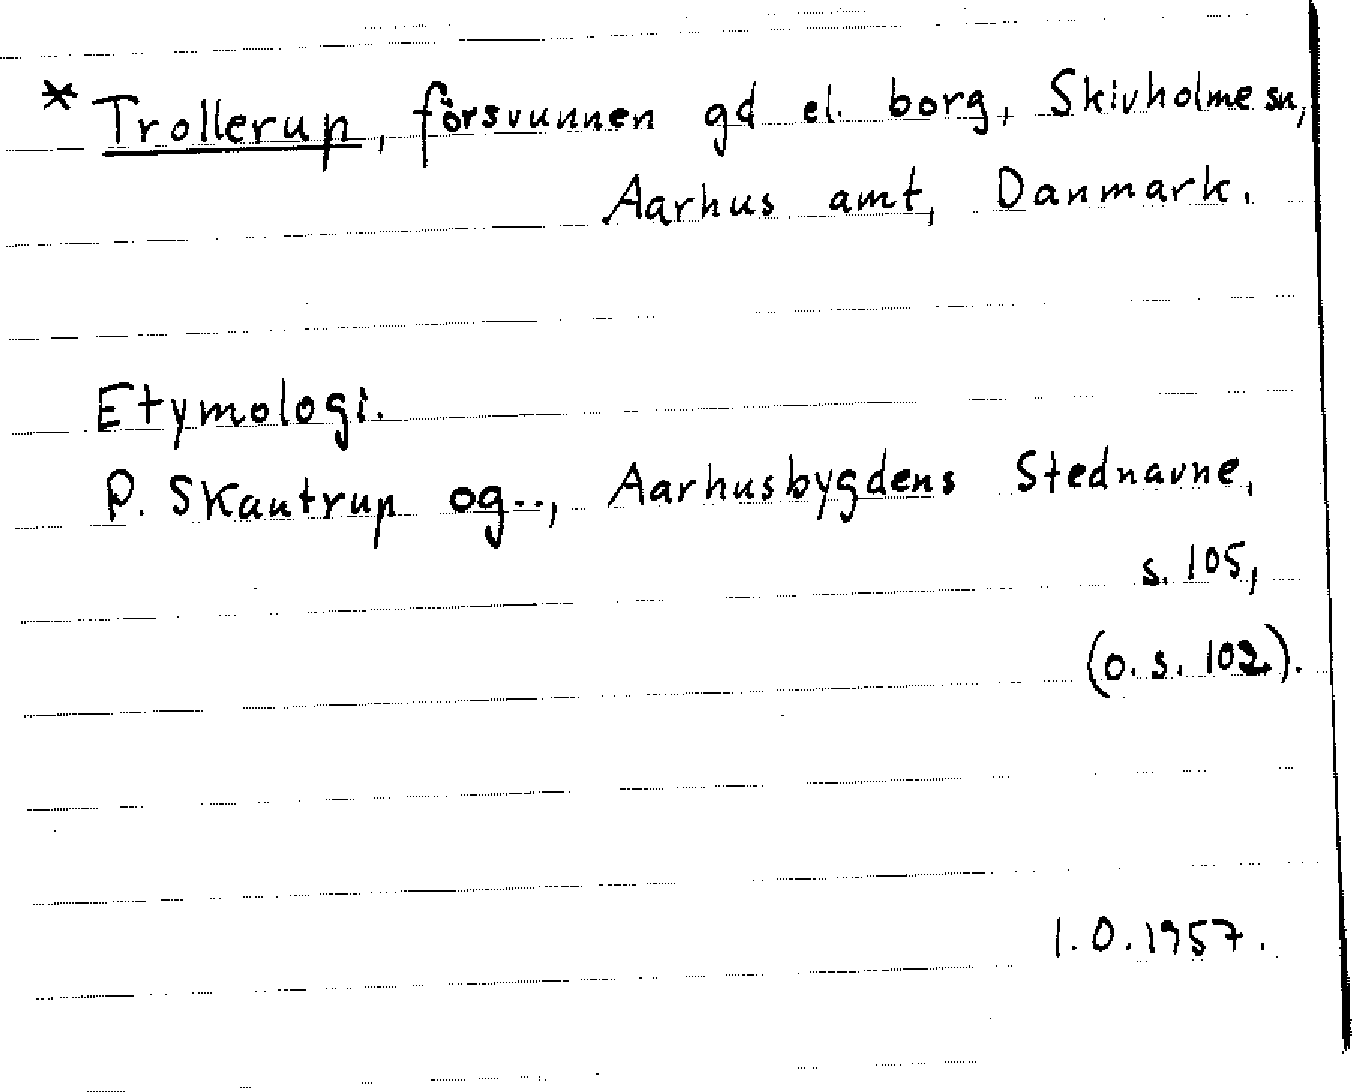 * Trollerup, försvunnen gd el. borg, Skivholme sn,
Aarhus amt, Danmark.
Etymologi.
P. Skautrup og.., Aarhusbygdens Stednavne,
s. 105,
(o. s. 102).
I.O. 1957.